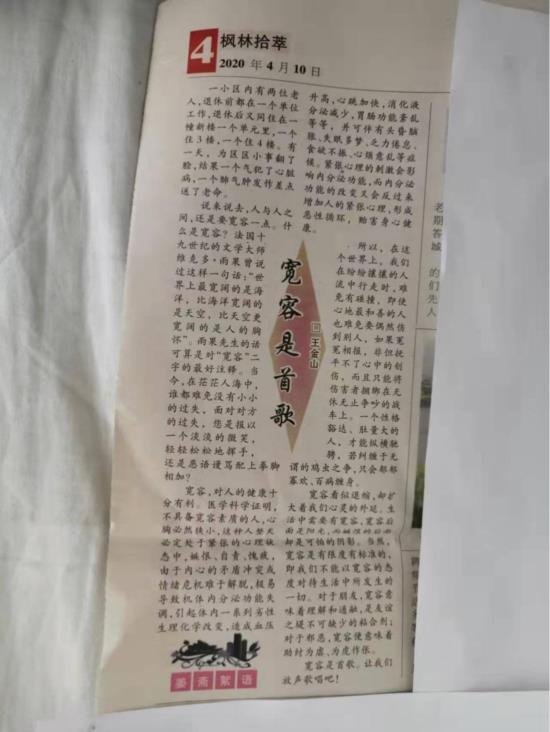 4
枫林拾萃
2020 年 4 月 10 日
宽容是首歌
王金山
一小区内有两位老
人,退休前都在一个单位
工作,退休后又同住在一
幢新楼一个单元里,一个
住3楼,一个住4楼。有
一天,为区区小事翻了
脸,结果一个气犯了心脏
病,一个肺气肿发作差点
送了老命。
说来说去,人与人之
间,还是要宽容一点。什
么是宽容?法国十
九世纪的文学大师
维克多·雨果曾说
过这样一句话:“世
界上最宽阔的是海
洋,比海洋宽阔的
是天空,比天空更
宽阔的是人的胸
怀”。雨果先生的话
可算是对“宽容”二
字的最好注释。当
今,在茫茫人海中,
谁都难免没有小小
的过失,面对对方
的过失,您是报以
一个淡淡的微笑,
轻轻松松地挥手,
还是恶语谩骂配上拳脚
相加?
宽容,对人的健康十
分有利。医学科学证明,
不具备宽容素质的人,心
胸必然狭小,这种人整天
必定处于紧张的心理状
态中,嫉恨、自责、愧疚,
由于内心的矛盾冲突或
情绪危机难于解脱,极易
导致机体内分泌功能失
调,引起体内一系列劣性
生理化学改变,造成血压
升高,心跳加快,消化液
分泌减少,胃肠功能紊乱
等等,并可伴有头昏脑
胀、失眠多梦、乏力倦怠、
食欲不振、心烦意乱等症
候。紧张心理的刺激会影
响内分泌功能,而内分泌
功能的改变又会反过来
增加人的紧张心理,形成
恶性循环,贻害身心健
康。
所以,在这
个世界上,我们
在纷纷攘攘的人
流中行走时,难
免有碰撞,即使
心地最和善的人
也难免要偶然伤
到别人,如果冤
冤相报,非但抚
平不了心中的创
伤,而且只能将
伤害者捆绑在无
休无止争吵的战
车上。一个性格
豁达、肚量大的
人,才能纵横驰
骋,若纠缠于无
谓的鸡虫之争,只会郁郁
寡欢、百病缠身。
宽容看似退缩,却扩
大着我们心灵的外延。生
活中需要有宽容,宽容后
面是阳光,
却是可怕的阴影。当然,
宽容是有限度有标准的,
即我们不能以宽容的态
度对待生活中所发生的
一切。对于朋友,宽容意
味着理解和通融,是友谊
之堤不可缺少的粘合剂;
对于邪恶,宽容便意味着
助纣为虐、为虎作伥。
宽容是首歌。让我们
放声歌唱吧!
姜斋絮语
老
期
答
城
的
们
人